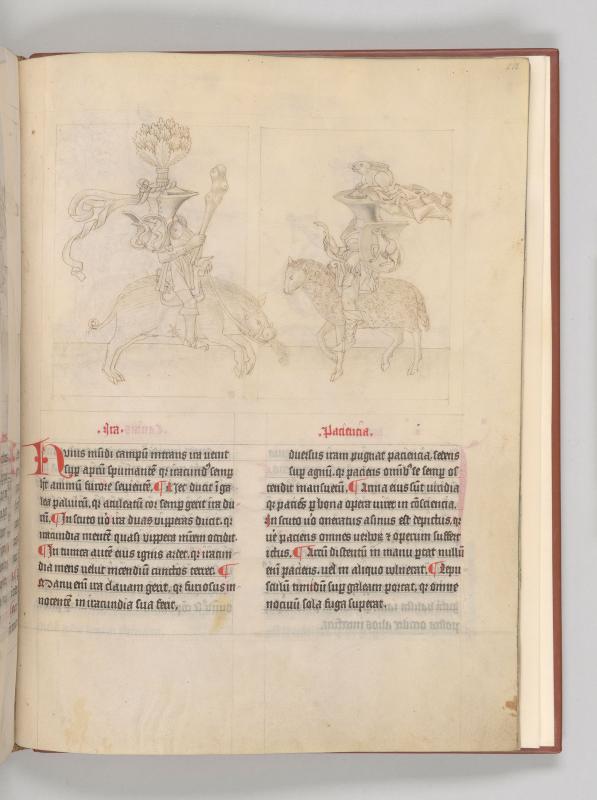 Ira.
Huius mūdi campū intrans ira venit
sup aprū spumantē qr iracundꝰ semp
h't animū furore sevientē. Hec ducit ī ga
lea paliurū, qr aculeatū cor semp gerit ira du
rū. In scuto vo ira duas vipperas ducit. qr
iracundia mentē quasi vippera mūem occidit.
In tunica autē eius ignis ardet, qr iracun
dia mens velut incendiū cunctos terret.
Manu enī ira clavam gerit, qr furiosus in
nocentē in iracundia sua ferit.
Paciencia.
duersus iram pugnat paciencia, sedens
sup agnū, qr paciens omībꝰ se semp os
tendit mansuetū. Arma eius sūt viridia
qr paciēs p bona opera viret in cōsciencia.
In scuto vo oneratus asinus est depictus, qr
vt paciens omnes verborū et operum suffert
ictus. Arcū distentū in manu portat nullū
enī paciens, vel in aliquo vulnerat. Lepu
sculū timidū sup galeam portat, qr omne
nocivū sola fuga superat.